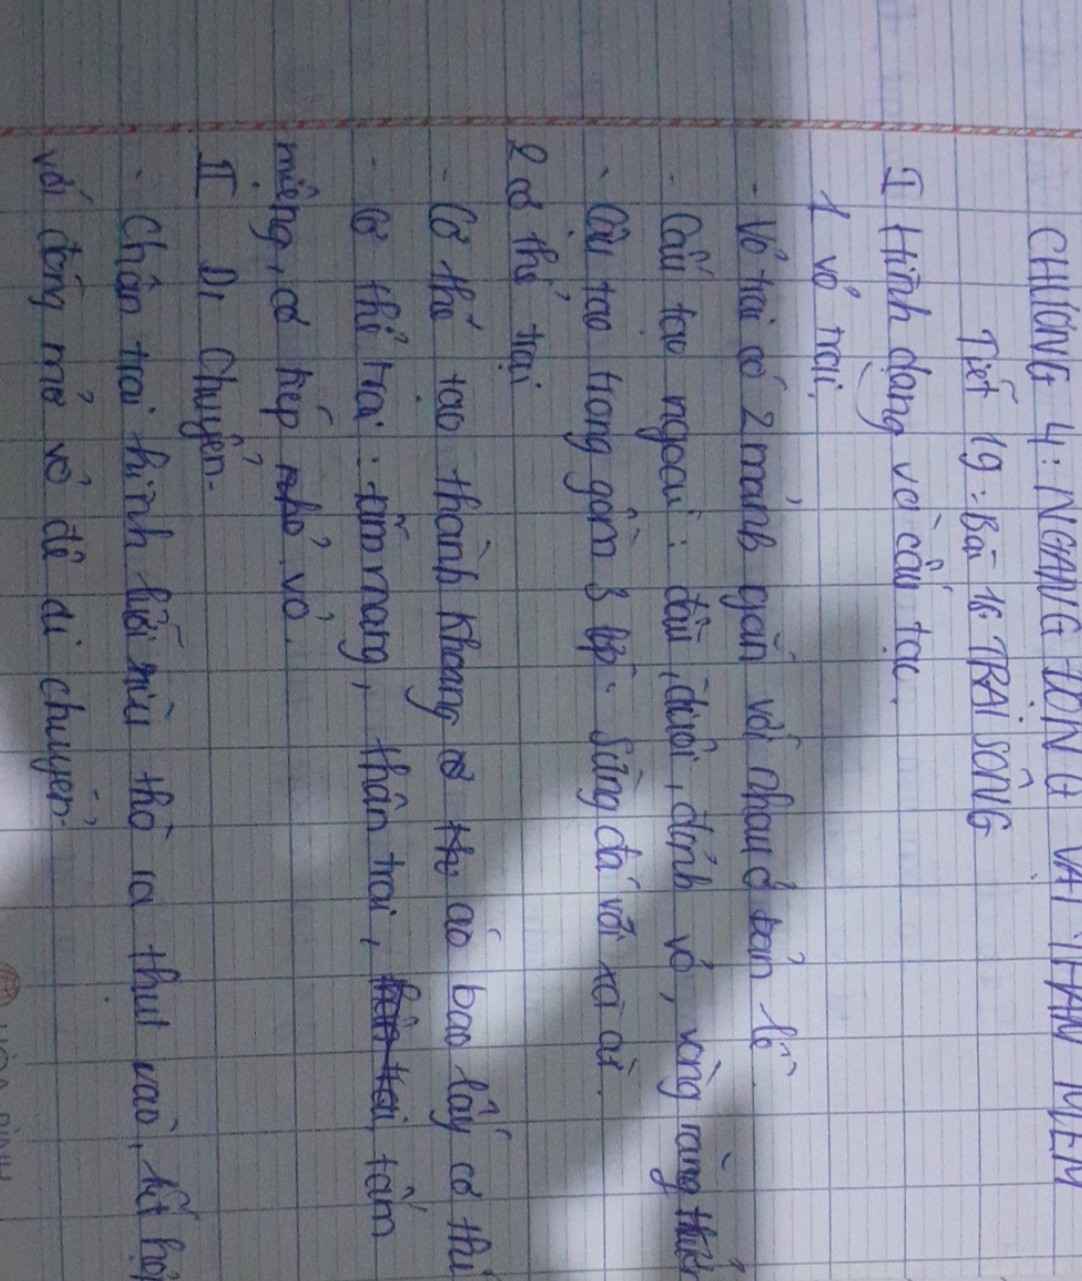 CHƯƠNG 4: NGHÀNH ĐỘNG VẬT THÂN MỀM
Tiết 19: Bài 18: TRAI SÔNG
I Hình dạng và cấu tạo.
1 vỏ trai.
- Vỏ trai có 2 mảnh gắn với nhau ở bản lề.
- Cấu tạo ngoài: đầu, đuôi, đỉnh vỏ, vòng tăng
- Cấu tạo trong gồm 3 lớp: Sừng đá vôi xà cừ.
2 cơ thể trai
- Cơ thể tạo thành khoang áo bao lấy cơ thể
- Cơ thể trai: tấm mang, thân trai, tấm
miệng, cơ khép vỏ.
II Di Chuyển.
- Chân trai hình lưỡi rìu thò ra thụt vào, kết hợp
với đóng mở vỏ để di chuyển.